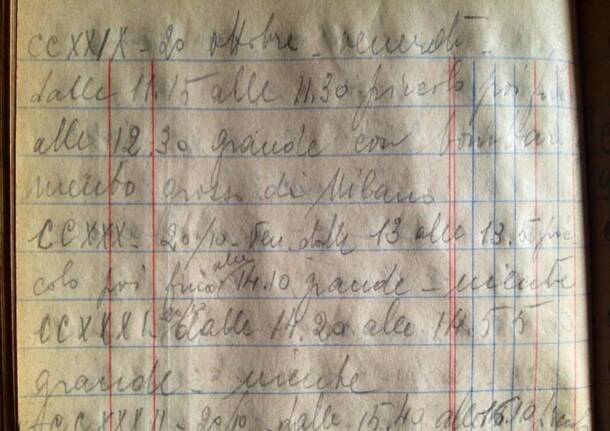 CCXXIX - 20 ottobre - venerdì -
dalle 11.15 alle 11.30 piccolo poi fino
alle 12.30 grande con bombar
mento grosso di Milano
CCXXX - 20/10 - Ven. dalle 13 alle 13.5 pic
colo poi fino alle 14.10 grande - niente
CCXXXI - 20/10 dalle 14.20 alle 14.55
grande - niente
CCXXXII - 20/10 - dalle 15.40 alle